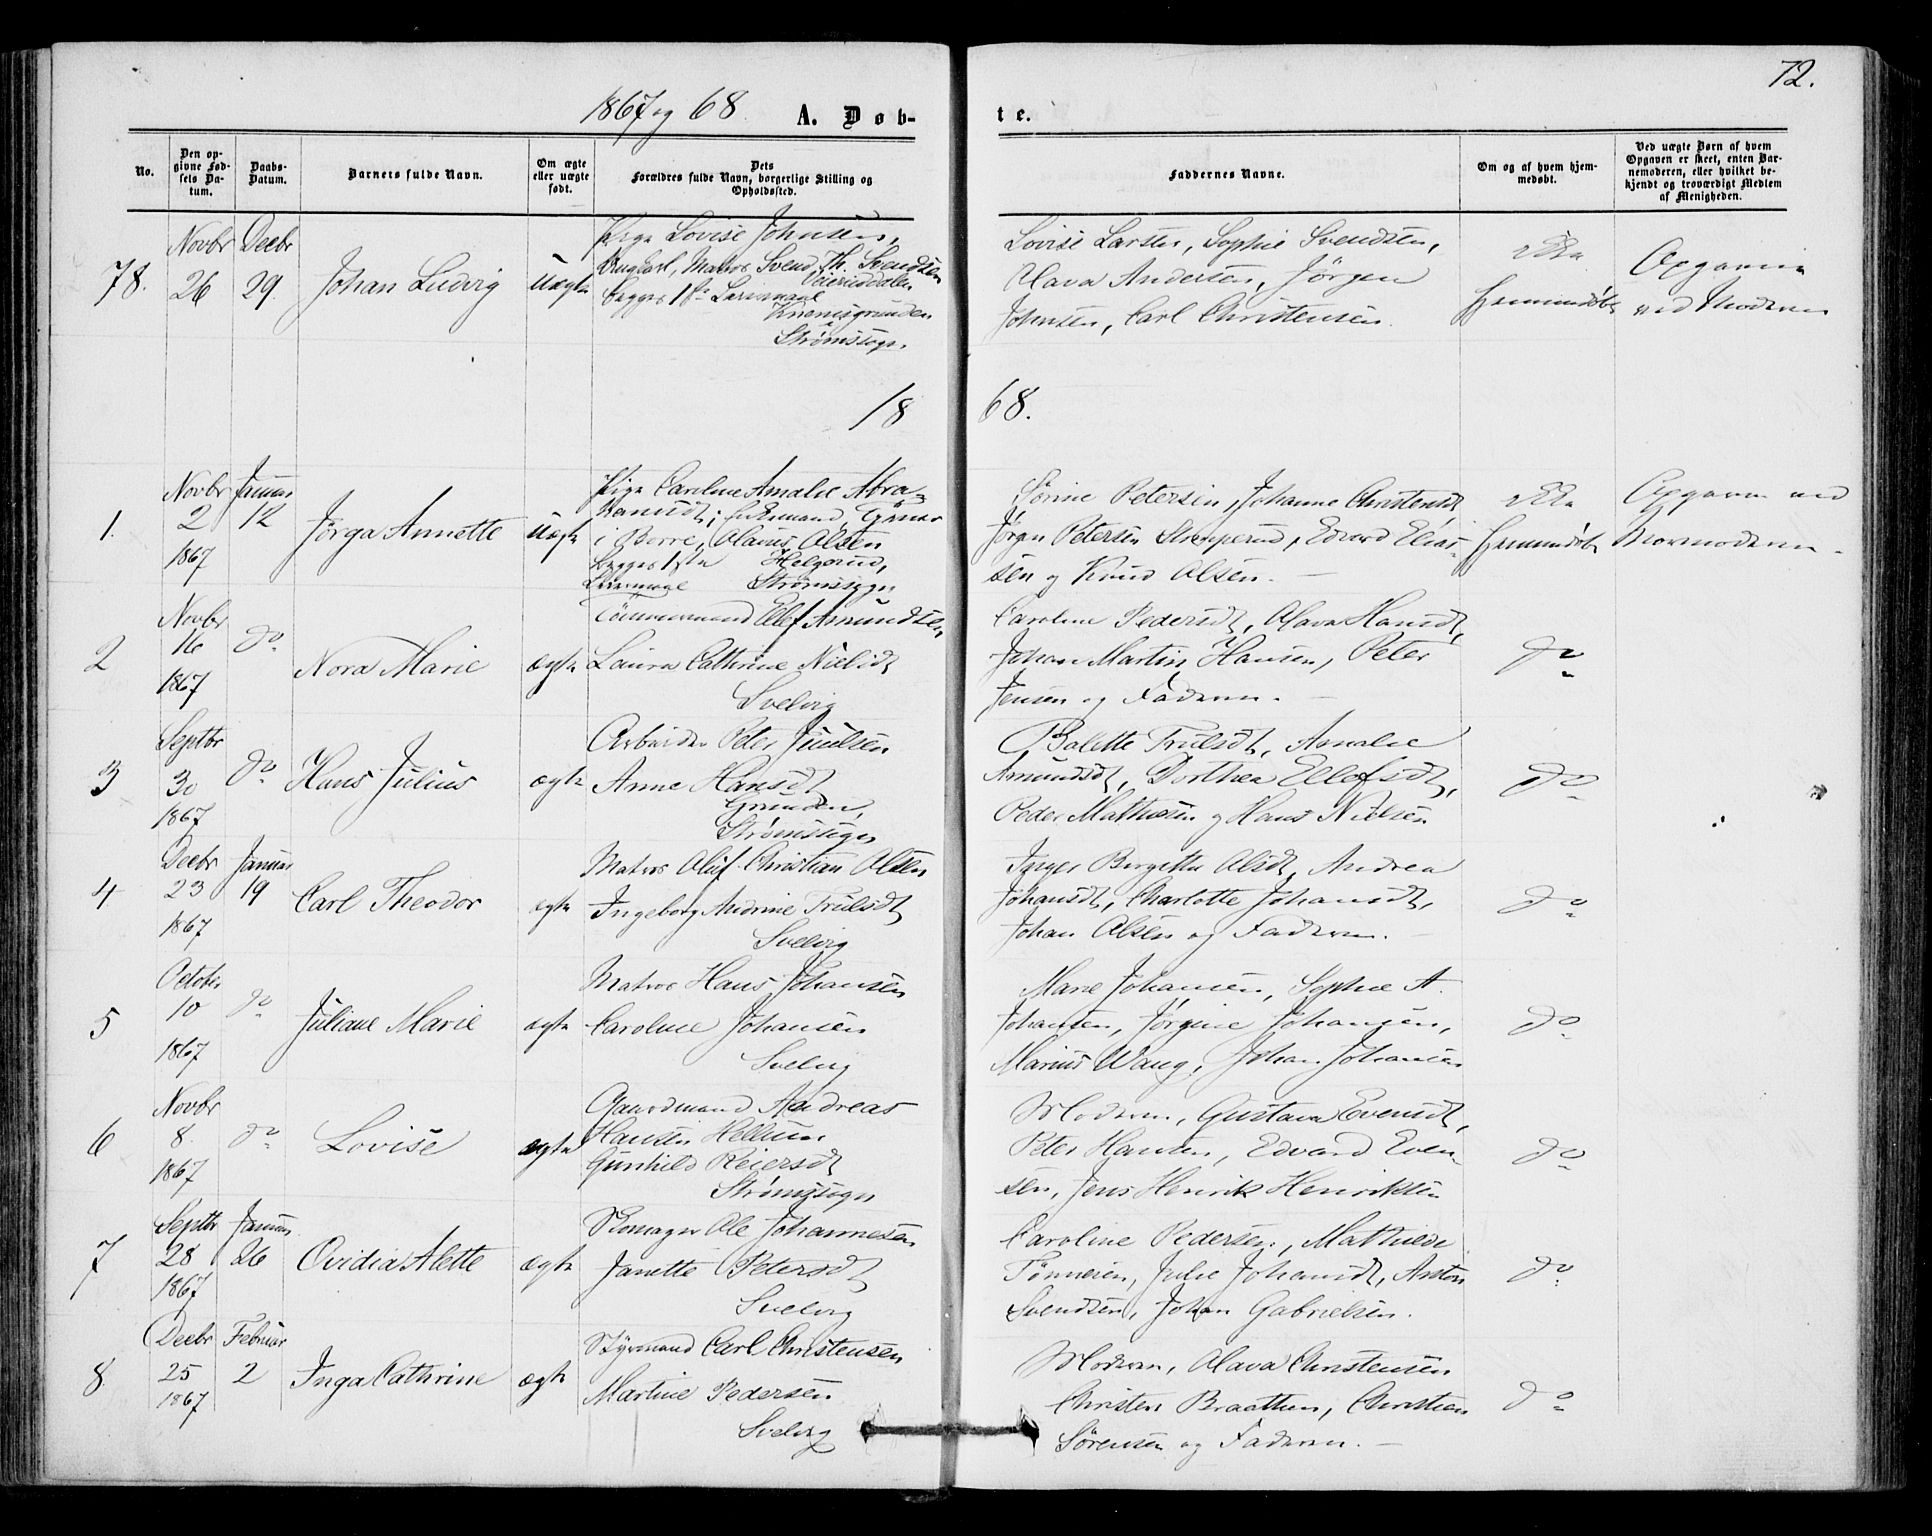 72.
1867 og 68. A. Døb-
te.
No.
Den op-
givne Fød-
sels Da-
tum.
Daabs-
Datum.
Barnets fulde Navn.
Om ægte
eller uægte
født.
Dets
Forældres fulde Navn, borgerlige Stilling og
Opholdssted.
Faddernes Navne.
Om og af hvem hjem-
medøbt.
Ved uægte Børn af hvem
Opgaven er skeet, enten Bar-
nemoderen, eller hvilket be-
kjendt og troværdigt Medlem
af Menigheden.
78.
Novbr
26
Decbr
29.
Johan Ludvig
Uægte
Pige Lovise Johnsen,
Ungkarl, Matros Svend Th. Svendsen
begges 1ste Leiermaal
Strømssogn.
Lovise Larsen, Sophie Svendsen,
Olava Andersen, Jørgen
Johnsen, Carl Christensen.
ikke
hjemmedøbt
Opgaven
ved Moderen
18
68.
1.
Novbr
2
1867
Januar
12
Jørga Annette
Uægte
Pige Caroline Amalie Abra-
hamsdt; Enkemand,
i Borre, Olaus Olsen
begges 1ste
Leiermaal Strømssogn
Sørine Petersen, Johanne Christensdt
Jørgen Petersen, Edvard Elias-
sen og Knud Olsen. -
ikke
hjemmedøbt
Opgaven ved
Mormoderen -
2
Novbr
16
1867
do
Nora Marie
ægte
Tømmermand Ellef Amundsen,
Laura Cathrine Nielsdt
Svelvig
Caroline Pedersdt, Olava Hansdt,
Johan Martin Hansen, Peter
Jensen og Faderen. -
do
3
Septbr
30
1867
do
Hans Julius
ægte
Arbeider Peter Juulsen
Anne Hansdt
Grunden,
Strømssogn
Balette Trulsdt, Amalie
Amundsdt, Dorthea Ellefsdt,
Peder Mathisen og Hans Nielsen
do
4
Decbr
23
1867
Januar
19
Carl Theodor
ægte
Matros Oluf Christian Olsen
Ingeborg Andrine Trulsdt
Svelvig
Inger Birgitte Olsdt, Andrea
Johansdt, Charlotte Johansdt,
Johan Olsen og Faderen. -
do
5
October
10
1867
do
Juliane Marie
ægte
Matros Hans Johansen
Caroline Johansen
Svelvig
Marie Johansen, Sophie A.
Johansen, Jørgine Johansen,
Marius Wang, Johan Johansen
do
6
Novbr
8.
1867
do
Lovise
ægte
Gaardmand Andreas
Hansen Hellum
Gunhild Reiersdt
Strømssogn
Moderen, Gustava Evensdt,
Peter Hansen, Edvard Even-
sen, Jens Henrik Henriksen
do
7
Septbr
28
1867
Januar
26
Ovidia Alette
ægte
Skomager Ole Johannesen
Janette Petersdt
Svelvig
Caroline Pedersen, Mathilde
Tønnesen, Julie Johansdt, Anton
Svendsen, Johan Gabrielsen.
do
8.
Decbr
25
1867
Februar
2
Inga Cathrine
ægte
Styrmand Carl Christensen
Martine Pedersen
Svelvig
Moderen, Olava Christensen
Christen Braathen, Christian
Sørensen og Faderen. -
do